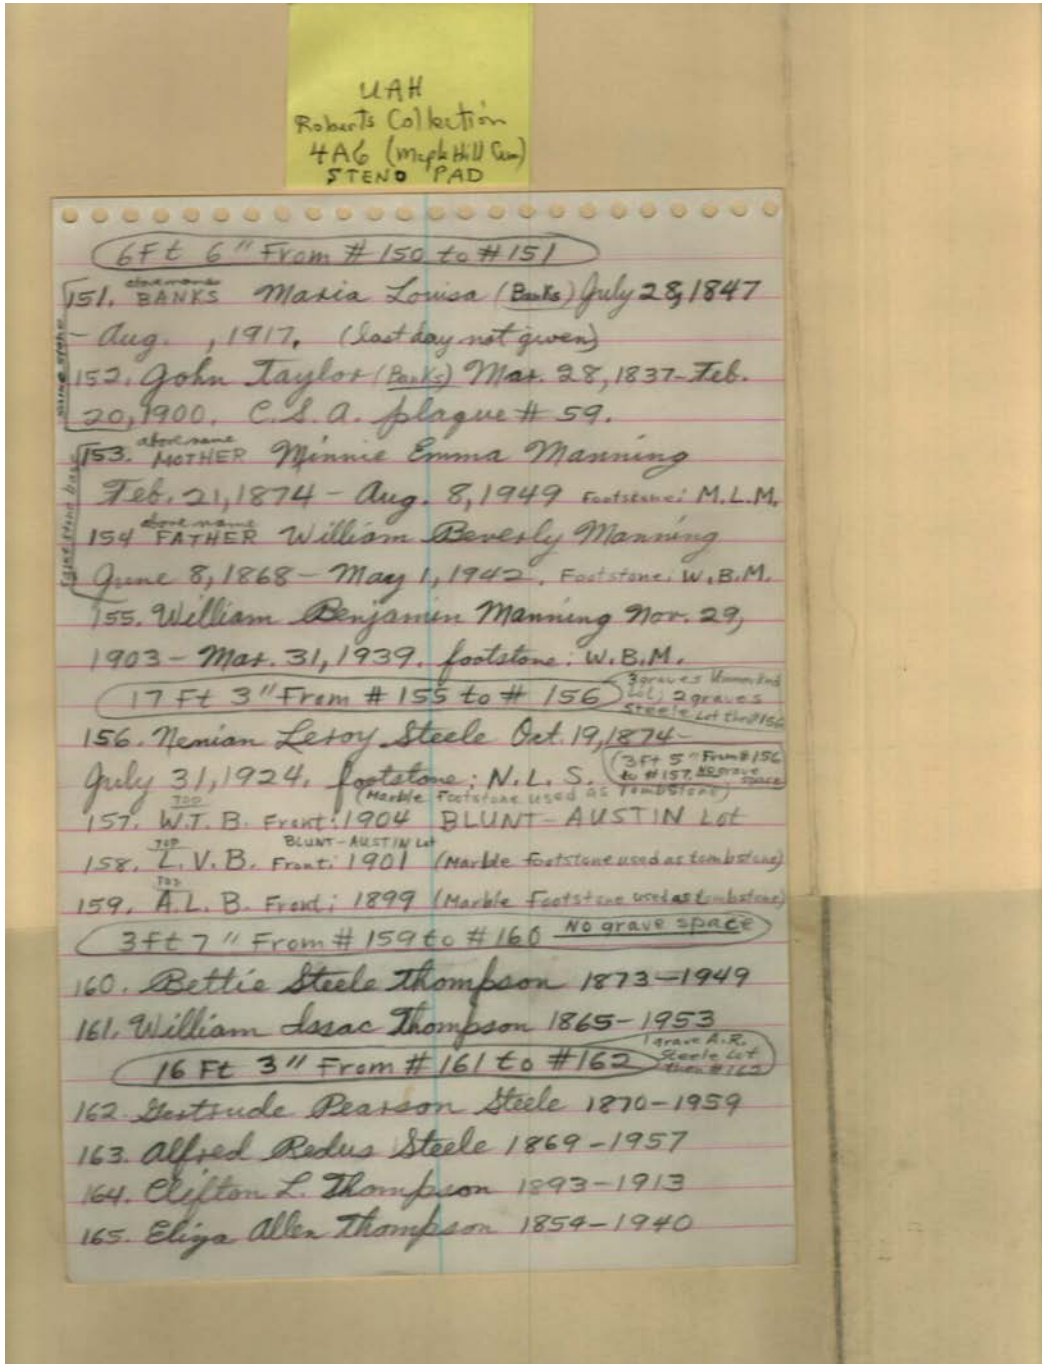 UAH
Roberts Collection
4A6 (Maple Hill Cem)
STENO PAD
6Ft 6" From # 150 to # 151
above name
151. BANKS Maria Louisa (Banks) July 28, 1847
- Aug. , 1917. (last day not given)
same stone
152. John Taylor (Banks) Mar. 28, 1837-Feb.
20, 1900. C.S.A. plaque # 59.
above name
153. MOTHER Minnie Emma Manning
Feb. 21, 1874 - Aug. 8, 1949 Footstone: M.L.M.
same stone base
above name
154 FATHER William Beverly Manning
June 8, 1868 - May 1, 1942. Footstone: W.B.M.
155. William Benjamin Manning Nov. 29,
1903 - Mar. 31, 1939. footstone: W.B.M.
17 Ft 3" From # 155 to # 156
3 graves Unmarked
Lot; 2 graves
Steele Lot then #156
156. Nenian Leroy Steele Oct. 19, 1874-
July 31, 1924. footstone: N.L.S.
(3Ft 5" From #156
to #157. No grave
space
(Marble Footstone used as Tombstone)
TOP
157. W.T.B. Front: 1904 BLUNT-AUSTIN Lot
BLUNT-AUSTIN Lot
TOP
158. L.V.B. Front: 1901 (Marble footstone used as tombstone)
TOP
159. A.L.B. Front: 1899 (Marble Footstone used as tombstone)
3ft 7" From # 159 to # 160 No grave space
160. Bettie Steele Thompson 1873-1949
161. William Issac Thompson 1865-1953
16 Ft 3" From # 161 to #162
1 grave A.R.
Steele Lot
then #162
162. Gertrude Pearson Steele 1870-1959
163. Alfred Redus Steele 1869-1957
164. Clifton L. Thompson 1893-1913
165. Eliza Allen Thompson 1854-1940